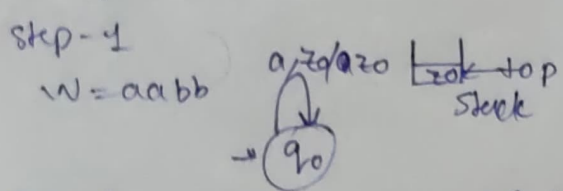 step-1
W = aabb
a, z0/az0
z0 top
Stack
q0